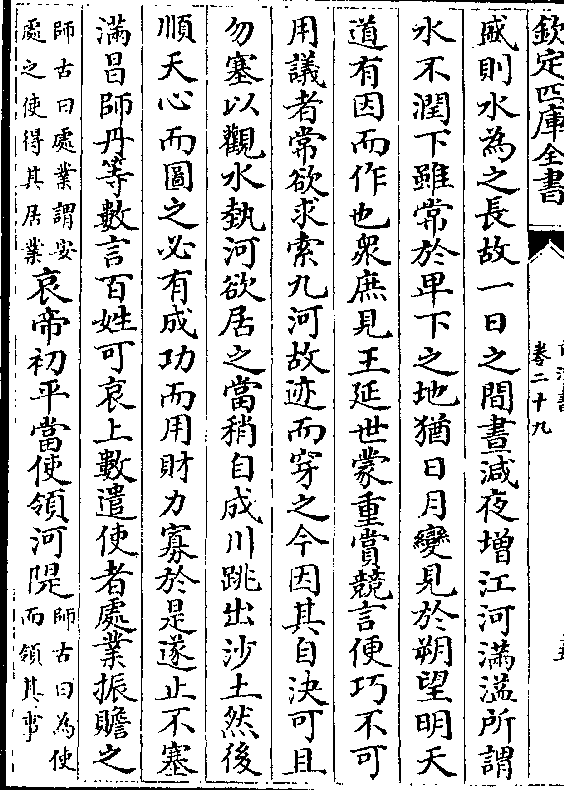 欽定四庫全書
卷二十九
盛則水為之長故一日之間晝減夜增江河滿溢所謂
水不潤下雖常於卑下之地猶日月變見於朔望明天
道有因而作也衆庶見王延世蒙重賞競言便巧不可
用議者常欲求索九河故迹而穿之今因其自決可且
勿塞以觀水埶河欲居之當稍自成川跳出沙土然後
順天心而圖之必有成功而用財力寡於是遂止不塞
滿昌師丹等數言百姓可哀上數遣使者處業振贍之
師古曰處業謂安
處之使得其居業
哀帝初平當使領河隄
師古曰為使
而領其事